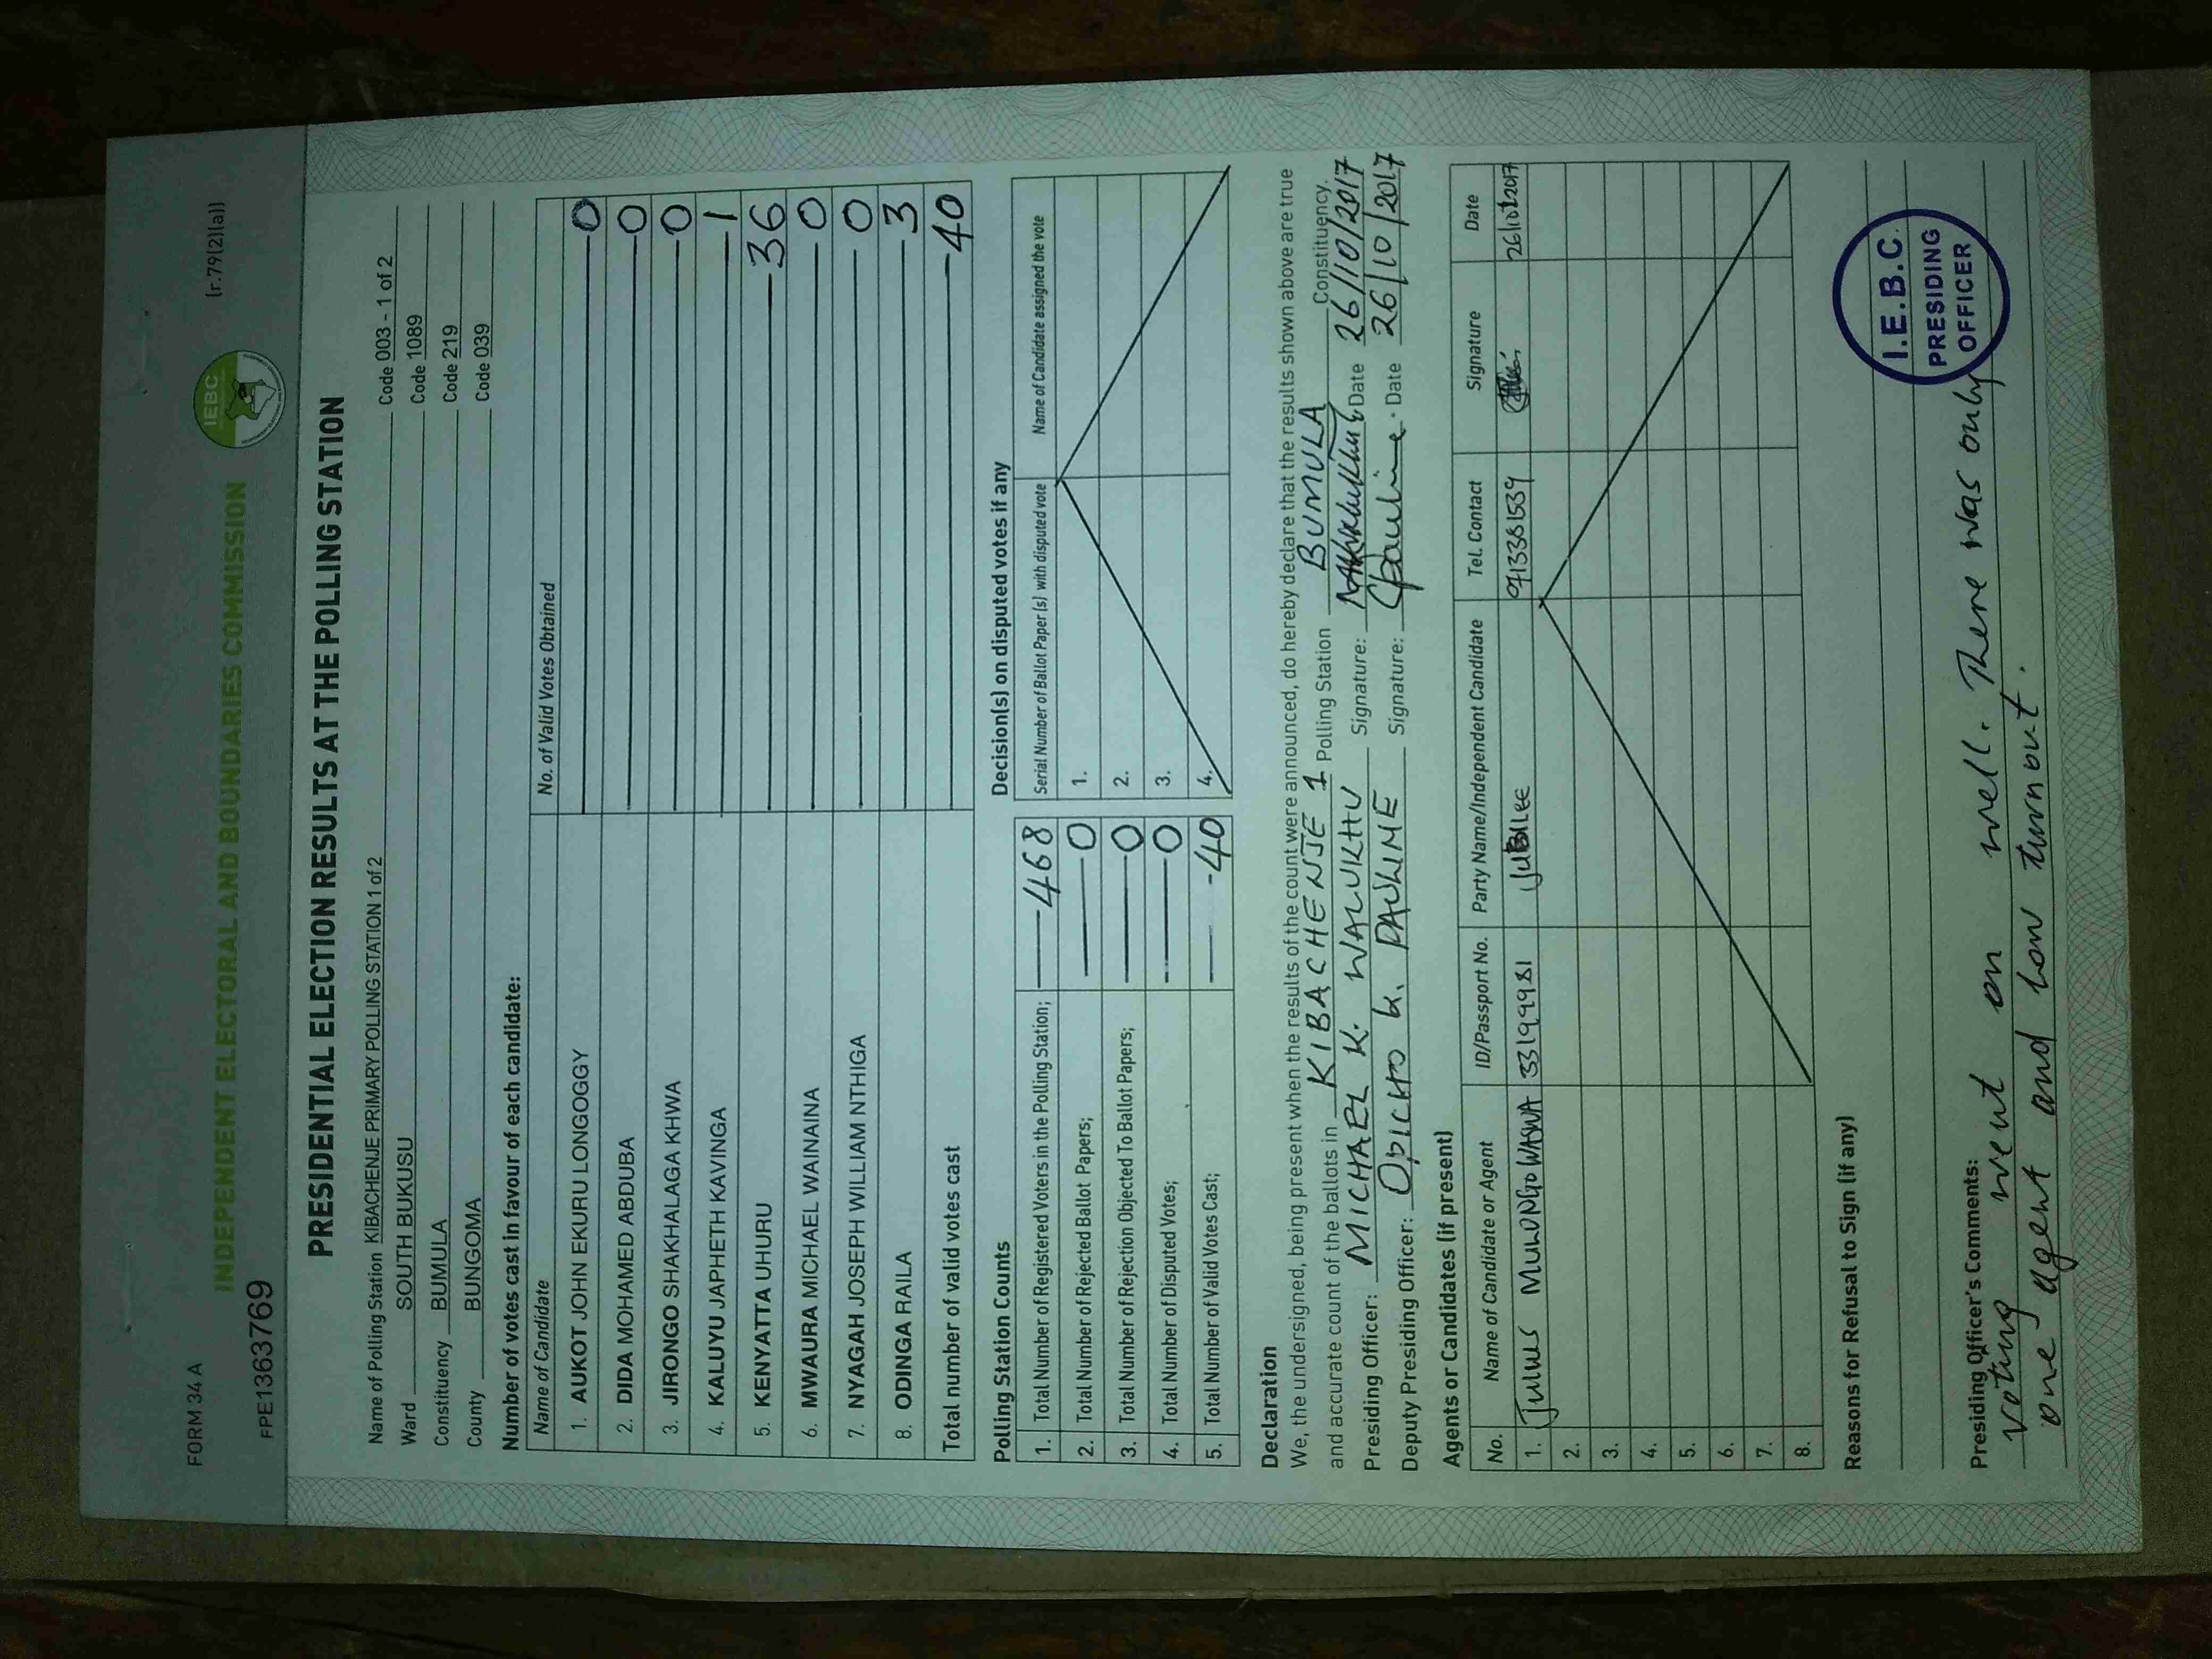 FORM 34 A
(r.79(2)(a))
INDEPENDENT ELECTORAL AND BOUNDARIES COMMISSION
IEBC
FPE1363769
PRESIDENTIAL ELECTION RESULTS AT THE POLLING STATION
Name of Polling Station KIBACHENJE PRIMARY POLLING STATION 1 of 2 Code 003 - 1 of 2
Ward SOUTH BUKUSU Code 1089
Constituency BUMULA Code 219
County BUNGOMA Code 039
Number of votes cast in favour of each candidate:
Name of Candidate No. of Valid Votes Obtained
1. AUKOT JOHN EKURU LONGOGGY 0
2. DIDA MOHAMED ABDUBA 0
3. JIRONGO SHAKHALAGA KHWA 0
4. KALUYU JAPHETH KAVINGA 1
5. KENYATTA UHURU 36
6. MWAURA MICHAEL WAINAINA 0
7. NYAGAH JOSEPH WILLIAM NTHIGA 0
8. ODINGA RAILA 3
Total number of valid votes cast 40
Polling Station Counts
1. Total Number of Registered Voters in the Polling Station; 468
2. Total Number of Rejected Ballot Papers; 0
3. Total Number of Rejection Objected To Ballot Papers; 0
4. Total Number of Disputed Votes; 0
5. Total Number of Valid Votes Cast; 40
Decision(s) on disputed votes if any
Serial Number of Ballot Paper (s) with disputed vote Name of Candidate assigned the vote
1.
2.
3.
4.
Declaration
We, the undersigned, being present when the results of the count were announced, do hereby declare that the results shown above are true
and accurate count of the ballots in KIBACHENJE 1 Polling Station BUMULA Constituency.
Presiding Officer: MICHAEL K. WALUKHU Signature: Date 26/10/2017
Deputy Presiding Officer: OPICHO K. PAULINE Signature: Pauline Date 26/10/2017
Agents or Candidates (if present)
No. Name of Candidate or Agent ID/Passport No. Party Name/Independent Candidate Tel. Contact Signature Date
1. JULIUS MULONGO WASWA 33199981 JUBILEE 0713381539 26/10/2017
2.
3.
4.
5.
6.
7.
8.
Reasons for Refusal to Sign (if any)
Presiding Officer's Comments:
voting went on well. There was only
one agent and low turnout.
I.E.B.C.
PRESIDING
OFFICER